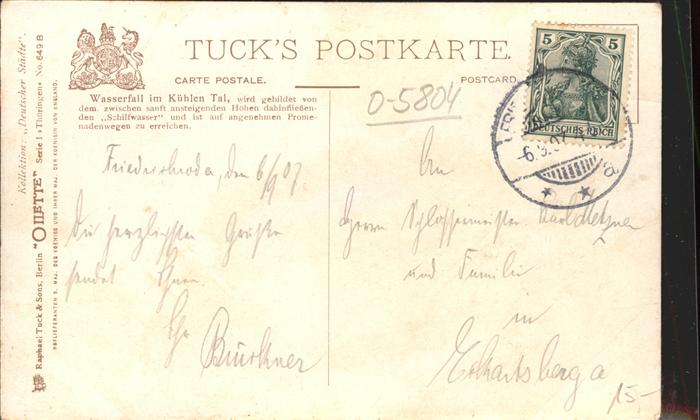 Kollektion: „Deutscher Städte“.
Raphael Tuck & Sons, Berlin "OILETTE" Serie I »Thüringen« No. 649 B
HOFLIEFERANTEN S. MAJ. DES KOENIGS UND IHRER MAJ. DER KOENIGIN VON ENGLAND.
TUCK'S POSTKARTE.
CARTE POSTALE.
POSTCARD.
Wasserfall im Kühlen Tal, wird gebildet von
dem zwischen sanft ansteigenden Höhen dahinfließen-
den „Schilfwasser“ und ist auf angenehmen Prome-
nadenwegen zu erreichen.
0-5804
5 5
DEUTSCHES REICH
-6.9.07
Friedrichroda, den 6/9 07
Die herzlichsten Grüße
sendet Ihnen
Ihr
Bürkner
An
Herrn Schlossermeister Karl Metzner
und Familie
in
Eckartsberga
15-